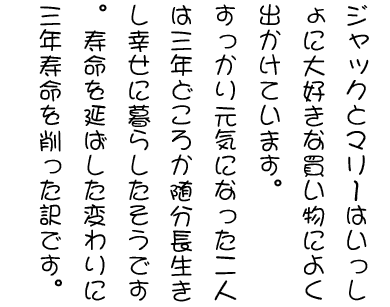 ジャックとマリーはいっし
ょに大好きな買い物によく
出かけています。
すっかり元気になった二人
は三年どころか随分長生き
し幸せに暮らしたそうです
。寿命を延ばした変わりに
三年寿命を削った訳です。